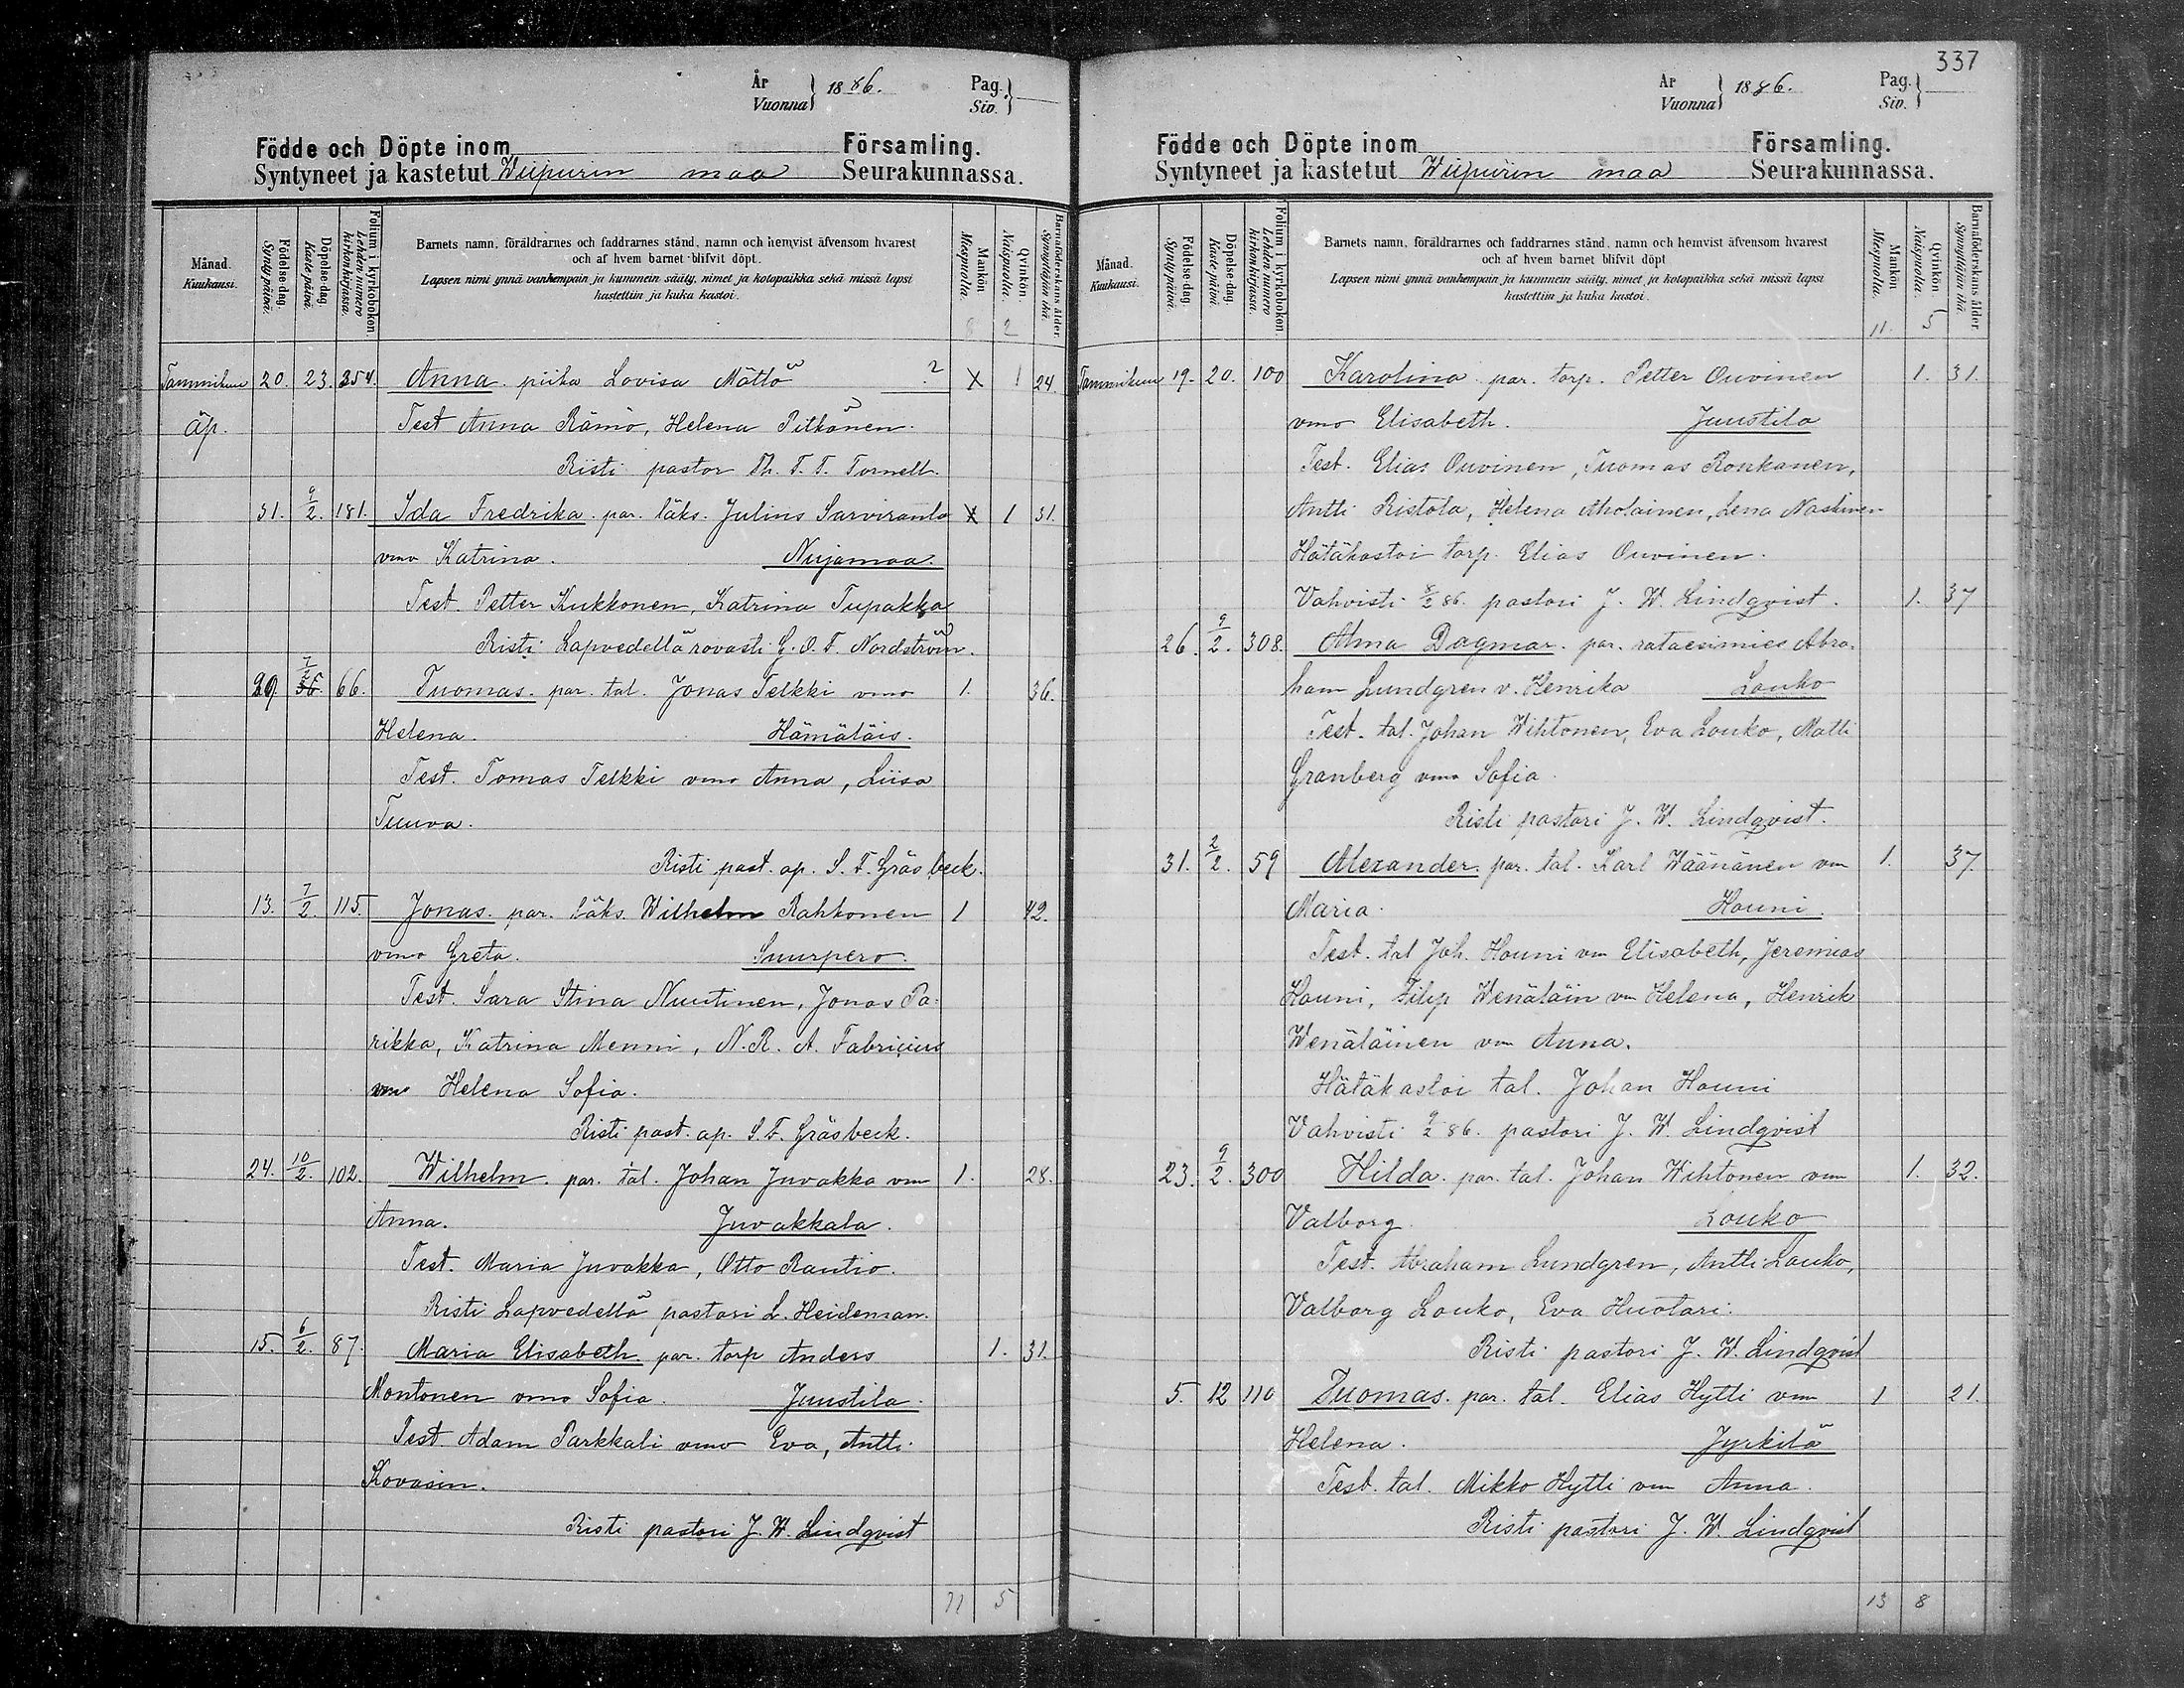 År
Vuonna } 1886. Pag.
Siv. }
Födde och Döpte inom Församling.
Syntyneet ja kastetut Wiipurin maa Seurakunnassa.
Månad.
Kuukausi.
Födelse-dag.
Syntypäivä.
Döpelse-dag.
Kastepäivä.
Folium i kyrkobokon.
Lehden numero kirkonkirjassa.
Barnets namn, föräldrarnes och faddrarnes stånd, namn och hemvist äfvensom hvarest
och af hvem barnet blifvit döpt.
Lapsen nimi ynnä vanhempain ja kummein sääty, nimet ja kotopaikka sekä missä lapsi
kastettiin ja kuka kastoi.
Mankön.
Miespuolia.
Qvinkön.
Naispuolia.
Barnaföderskans ålder.
Synnyttäjän ikä.
2
Tammikuu 20. 23. 354. Anna piika Lovisa Mättö ? X 1 24.
äp. Test Anna Rämö, Helena Pitkänen.
Risti pastor Th. T. T. Tornell.
31. 9/2. 181. Ida Fredrika par. läks. Julius Sarviranta X 1 31.
vmo Katrina. Nuijamaa.
Test. Petter Kukkonen, Katrina Tupakka
Risti Lapvedellä rovasti G. O. F. Nordström.
29. 7/2 66. Tuomas. par. tal. Jonas Telkki vmo 1. 36.
Helena. Hämäläis.
Test. Tomas Telkki vmo Anna, Liisa
Tuuva.
Risti past. ap. S. F. Gräsbeck.
13. 7/2. 115. Jonas. par. läks. Wilhelm Rahkonen 1 42.
vmo Greta. Suurpero.
Test. Sara Stina Nuutinen, Jonas Pa-
rikka, Katrina Menni, N. R. A. Fabricius
vmo Helena Sofia.
Risti past. ap. S. F. Gräsbeck.
24. 10/2. 102. Wilhelm. par. tal. Johan Juvakka vm 1. 28.
Anna. Juvakkala.
Test. Maria Juvakka, Otto Rautio.
Risti Lapvedellä pastori L. Heideman.
15. 6/2. 87. Maria Elisabeth. par. torp Anders 1. 31.
Montonen vmo Sofia. Juustila.
Test. Adam Parkkali vmo Eva, Antti
Kovasin.
Risti pastori J. W. Lindqvist
11 5
337
År
Vuonna } 1886. Pag.
Siv. }
Födde och Döpte inom Församling.
Syntyneet ja kastetut Wiipurin maa Seurakunnassa.
Månad.
Kuukausi.
Födelse-dag.
Syntypäivä.
Döpelse-dag.
Kastepäivä.
Folium i kyrkobokon.
Lehden numero kirkonkirjassa.
Barnets namn, föräldrarnes och faddrarnes stånd, namn och hemvist äfvensom hvarest
och af hvem barnet blifvit döpt
Lapsen nimi ynnä vanhempain ja kummein sääty, nimet ja kotopaikka sekä missä lapsi
kastettiin ja kuka kastoi.
Mankön.
Miespuolia.
Qvinkön.
Naispuolia.
Barnaföderskans ålder.
Synnyttäjän ikä.
11. 5
Tammikuu 19. 20. 100 Karolina par. torp. Petter Ouvinen 1. 31.
vmo Elisabeth. Juustila
Test. Elias Ouvinen, Tuomas Ronkanen,
Antti Ristola, Helena Aholainen, Lena Naskinen
Hätäkastoi torp. Elias Ouvinen.
Vahvisti 8/2 86. pastori J. W. Lindqvist. 1. 37
26. 9/2. 308. Alma Dagmar. par. rataesimies Abra-
ham Lundgren v. Henrika Louko
Test. tal. Johan Wihtonen, Eva Louko, Matti
Granberg vmo Sofia.
Risti pastori J. W. Lindqvist.
31. 2/2. 59 Alexander. par. tal. Karl Wäänänen vm 1. 37.
Maria. Houni.
Test. tal Joh. Houni vm Elisabeth, Jeremias
Houni, Filip Wenäläin vm Helena, Henrik
Wenäläinen vm Anna.
Hätäkastoi tal. Johan Houni
Vahvisti 9/2 86. pastori J. W. Lindqvist
23. 9/2. 300 Hilda. par. tal. Johan Wihtonen vm 1. 32.
Valborg Louko
Test. Abraham Lundgren, Antti Louko,
Valborg Louko, Eva Huotari.
Risti pastori J. W. Lindqvist
5. 12 110 Tuomas. par. tal. Elias Hytti vm 1 21.
Helena. Jyrkilä
Test. tal. Mikko Hytti vm Anna.
Risti pastori J. W. Lindqvist
13 8